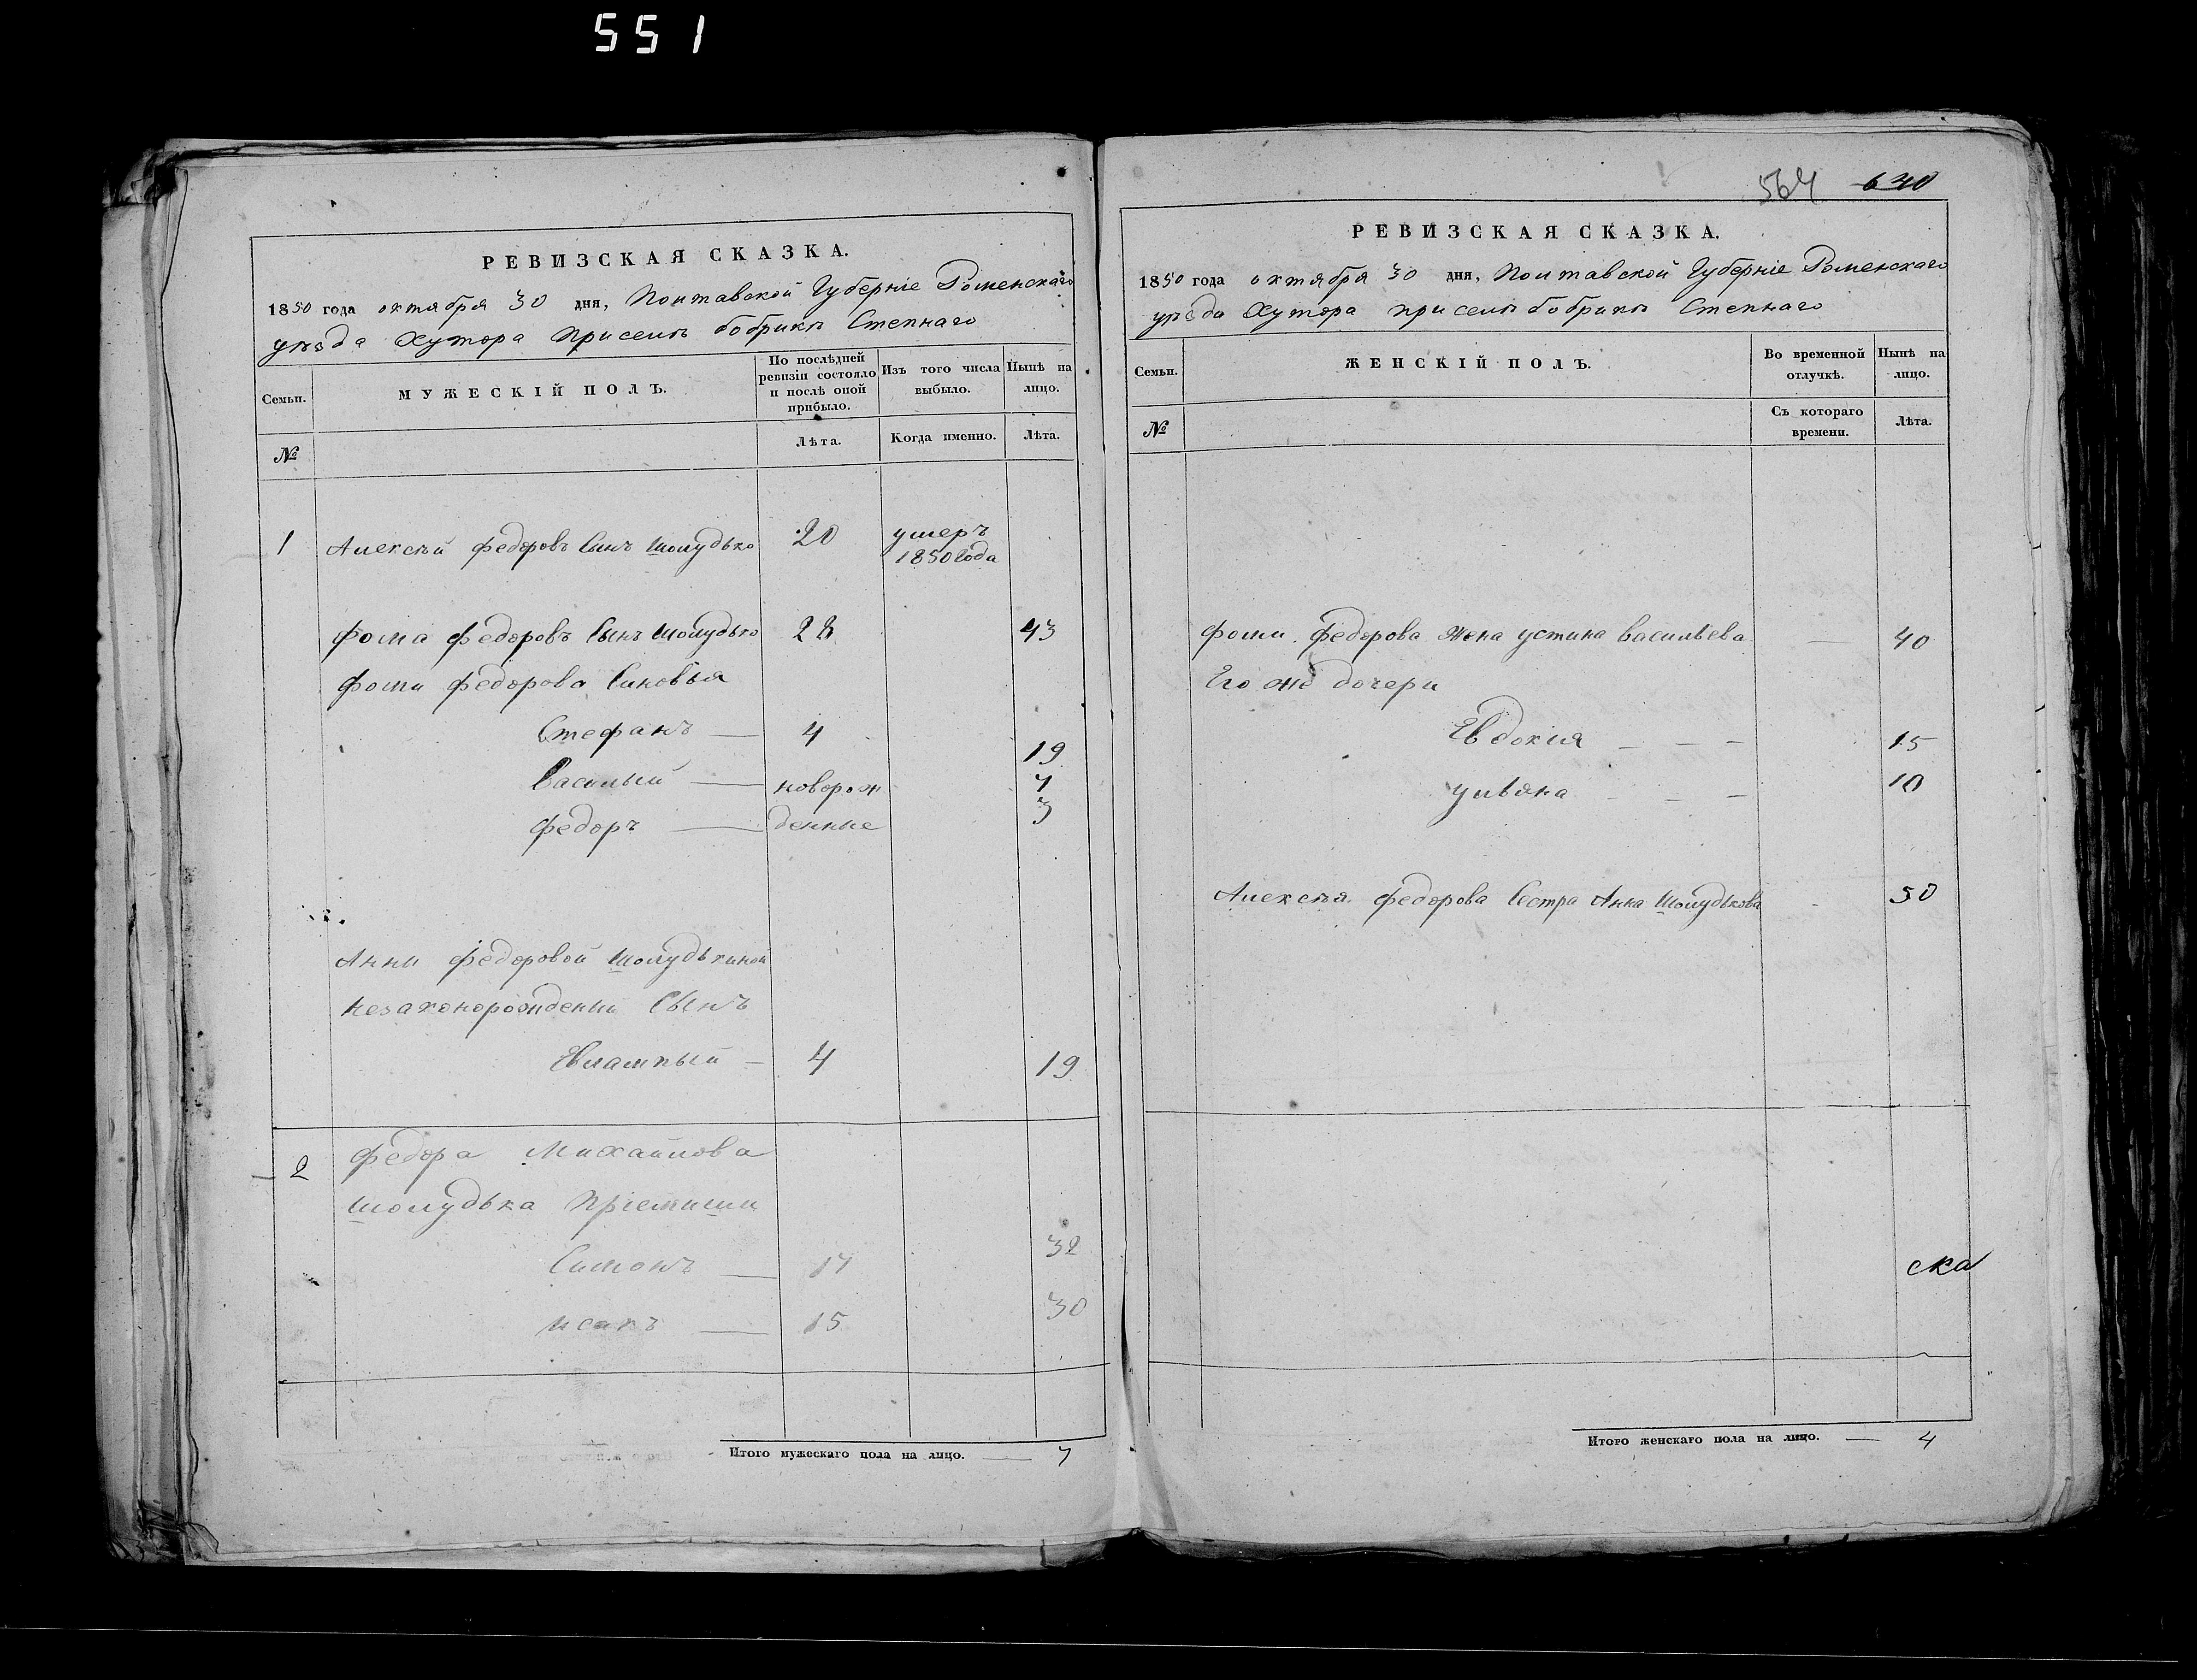 551
564 630
РЕВИЗСКАЯ СКАЗКА.
1850 года октября 30 дня, Полтавской Губерніе Роменскаго
уѣзда Хутора при селѣ бобрикѣ Степнаго
Семьи.
МУЖЕСКІЙ ПОЛЪ.
По послѣдней ревизіи состояло и послѣ оной прибыло.
Изъ того числа выбыло.
Нынѣ на лицо.
№
Лѣта.
Когда именно.
Лѣта.
1 Алексѣй федоровъ Сынъ Шолудько 20 умеръ 1850 года
фома федоровъ Сынъ Шолудько 28 43
фоми федорова Синовья
Стефанъ — 4 19
Василый — новорож 7
федоръ — денные 3
Анни федоровой Шолудькиной
незаконорождений Сынъ
Евлампый — 4 19
2 федора Михайлова
Шолудька пріемиши
Симонъ — 17 32
исакъ — 15 30
Итого мужескаго пола на лицо. — 7
РЕВИЗСКАЯ СКАЗКА.
1850 года октября 30 дня, Полтавской Губерніе Роменскаго
уѣзда Хутора при селѣ бобрикѣ Степнаго
Семьи.
ЖЕНСКІЙ ПОЛЪ.
Во временной отлучкѣ.
Нынѣ на лицо.
№
Съ котораго времени.
Лѣта.
фоми федорова жена устина васильева — 40
Его же дочери
Евдокія — — — 15
ульяна — — — 10
Алексѣя федорова Сестра Анна Шолудькова 50
ска
Итого женскаго пола на лицо. — 4